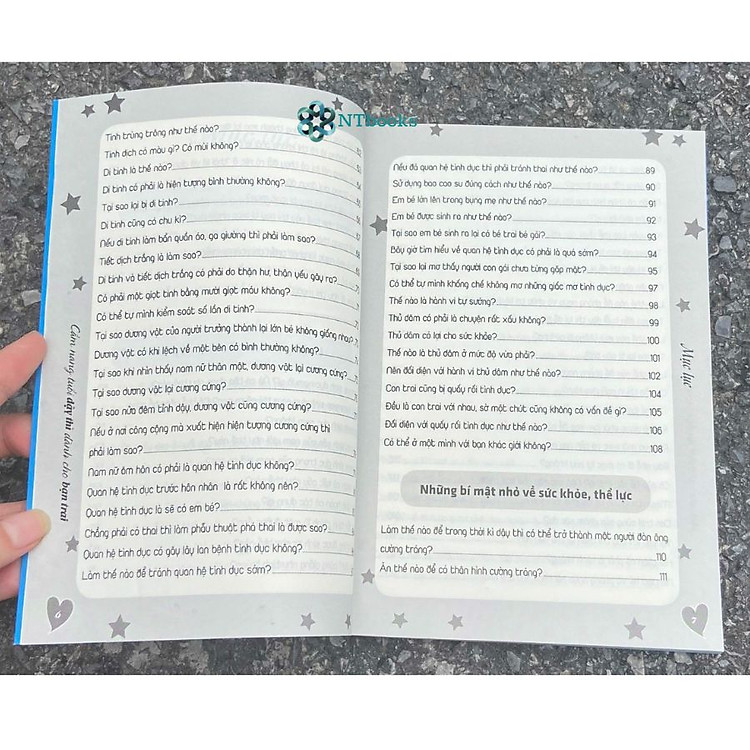 NTbooks
Tinh trùng trông như thế nào?
Tinh dịch có màu gì? Có mùi không? 82
Di tinh là thế nào?
Di tinh có phải là hiện tượng bình thường không?
Tại sao lại bị di tinh?
Di tinh cũng có chu kì?
Nếu di tinh làm bẩn quần áo, ga giường thì phải làm sao?
Tiết dịch trắng là làm sao?
Di tinh và tiết dịch trắng có phải do thận hư, thận yếu gây ra?
Có phải một giọt tinh bằng mười giọt máu không?
Có thể tự mình kiểm soát số lần di tinh?
Tại sao dương vật của người trưởng thành lại lớn bé không giống nhau?
Dương vật có khi lệch về một bên có bình thường không?
Tại sao khi nhìn thấy nam nữ thân mật, dương vật lại cương cứng?
Tại sao dương vật lại cương cứng?
Tại sao nửa đêm tỉnh dậy, dương vật cũng cương cứng?
Nếu ở nơi công cộng mà xuất hiện hiện tượng cương cứng thì
phải làm sao?
Nam nữ ôm hôn có phải là quan hệ tình dục không?
Quan hệ tình dục trước hôn nhân là rất không nên?
Quan hệ tình dục là sẽ có em bé?
Chẳng phải có thai thì làm phẫu thuật phá thai là được sao?
Quan hệ tình dục có gây lây lan bệnh tình dục không?
Làm thế nào để tránh quan hệ tình dục sớm?
Cẩm nang tuổi dậy thì dành cho bạn trai
6
Nếu đã quan hệ tình dục thì phải tránh thai như thế nào? 89
Sử dụng bao cao su đúng cách như thế nào? 90
Em bé lớn lên trong bụng mẹ như thế nào? 91
Em bé được sinh ra như thế nào? 92
Tại sao em bé sinh ra lại có bé trai bé gái? 93
Bây giờ tìm hiểu về quan hệ tình dục có phải là quá sớm? 94
Tại sao lại mơ thấy người con gái chưa từng gặp mặt? 95
Có thể tự mình khống chế không mơ những giấc mơ tình dục? 97
Thế nào là hành vi tự sướng? 98
Thủ dâm có phải là chuyện rất xấu không? 99
Thủ dâm có lợi cho sức khỏe? 100
Thế nào là thủ dâm ở mức độ vừa phải? 101
Nên đối diện với hành vi thủ dâm như thế nào? 102
Con trai cũng bị quấy rối tình dục? 104
Đều là con trai với nhau, sờ một chút cũng không có vấn đề gì? 105
Đối diện với quấy rối tình dục như thế nào? 106
Có thể ở một mình với bạn khác giới không? 108
Những bí mật nhỏ về sức khỏe, thể lực
Làm thế nào để trong thời kì dậy thì có thể trở thành một người đàn ông
cường tráng? 110
Ăn thế nào để có thân hình cường tráng? 111
Mục lục
7